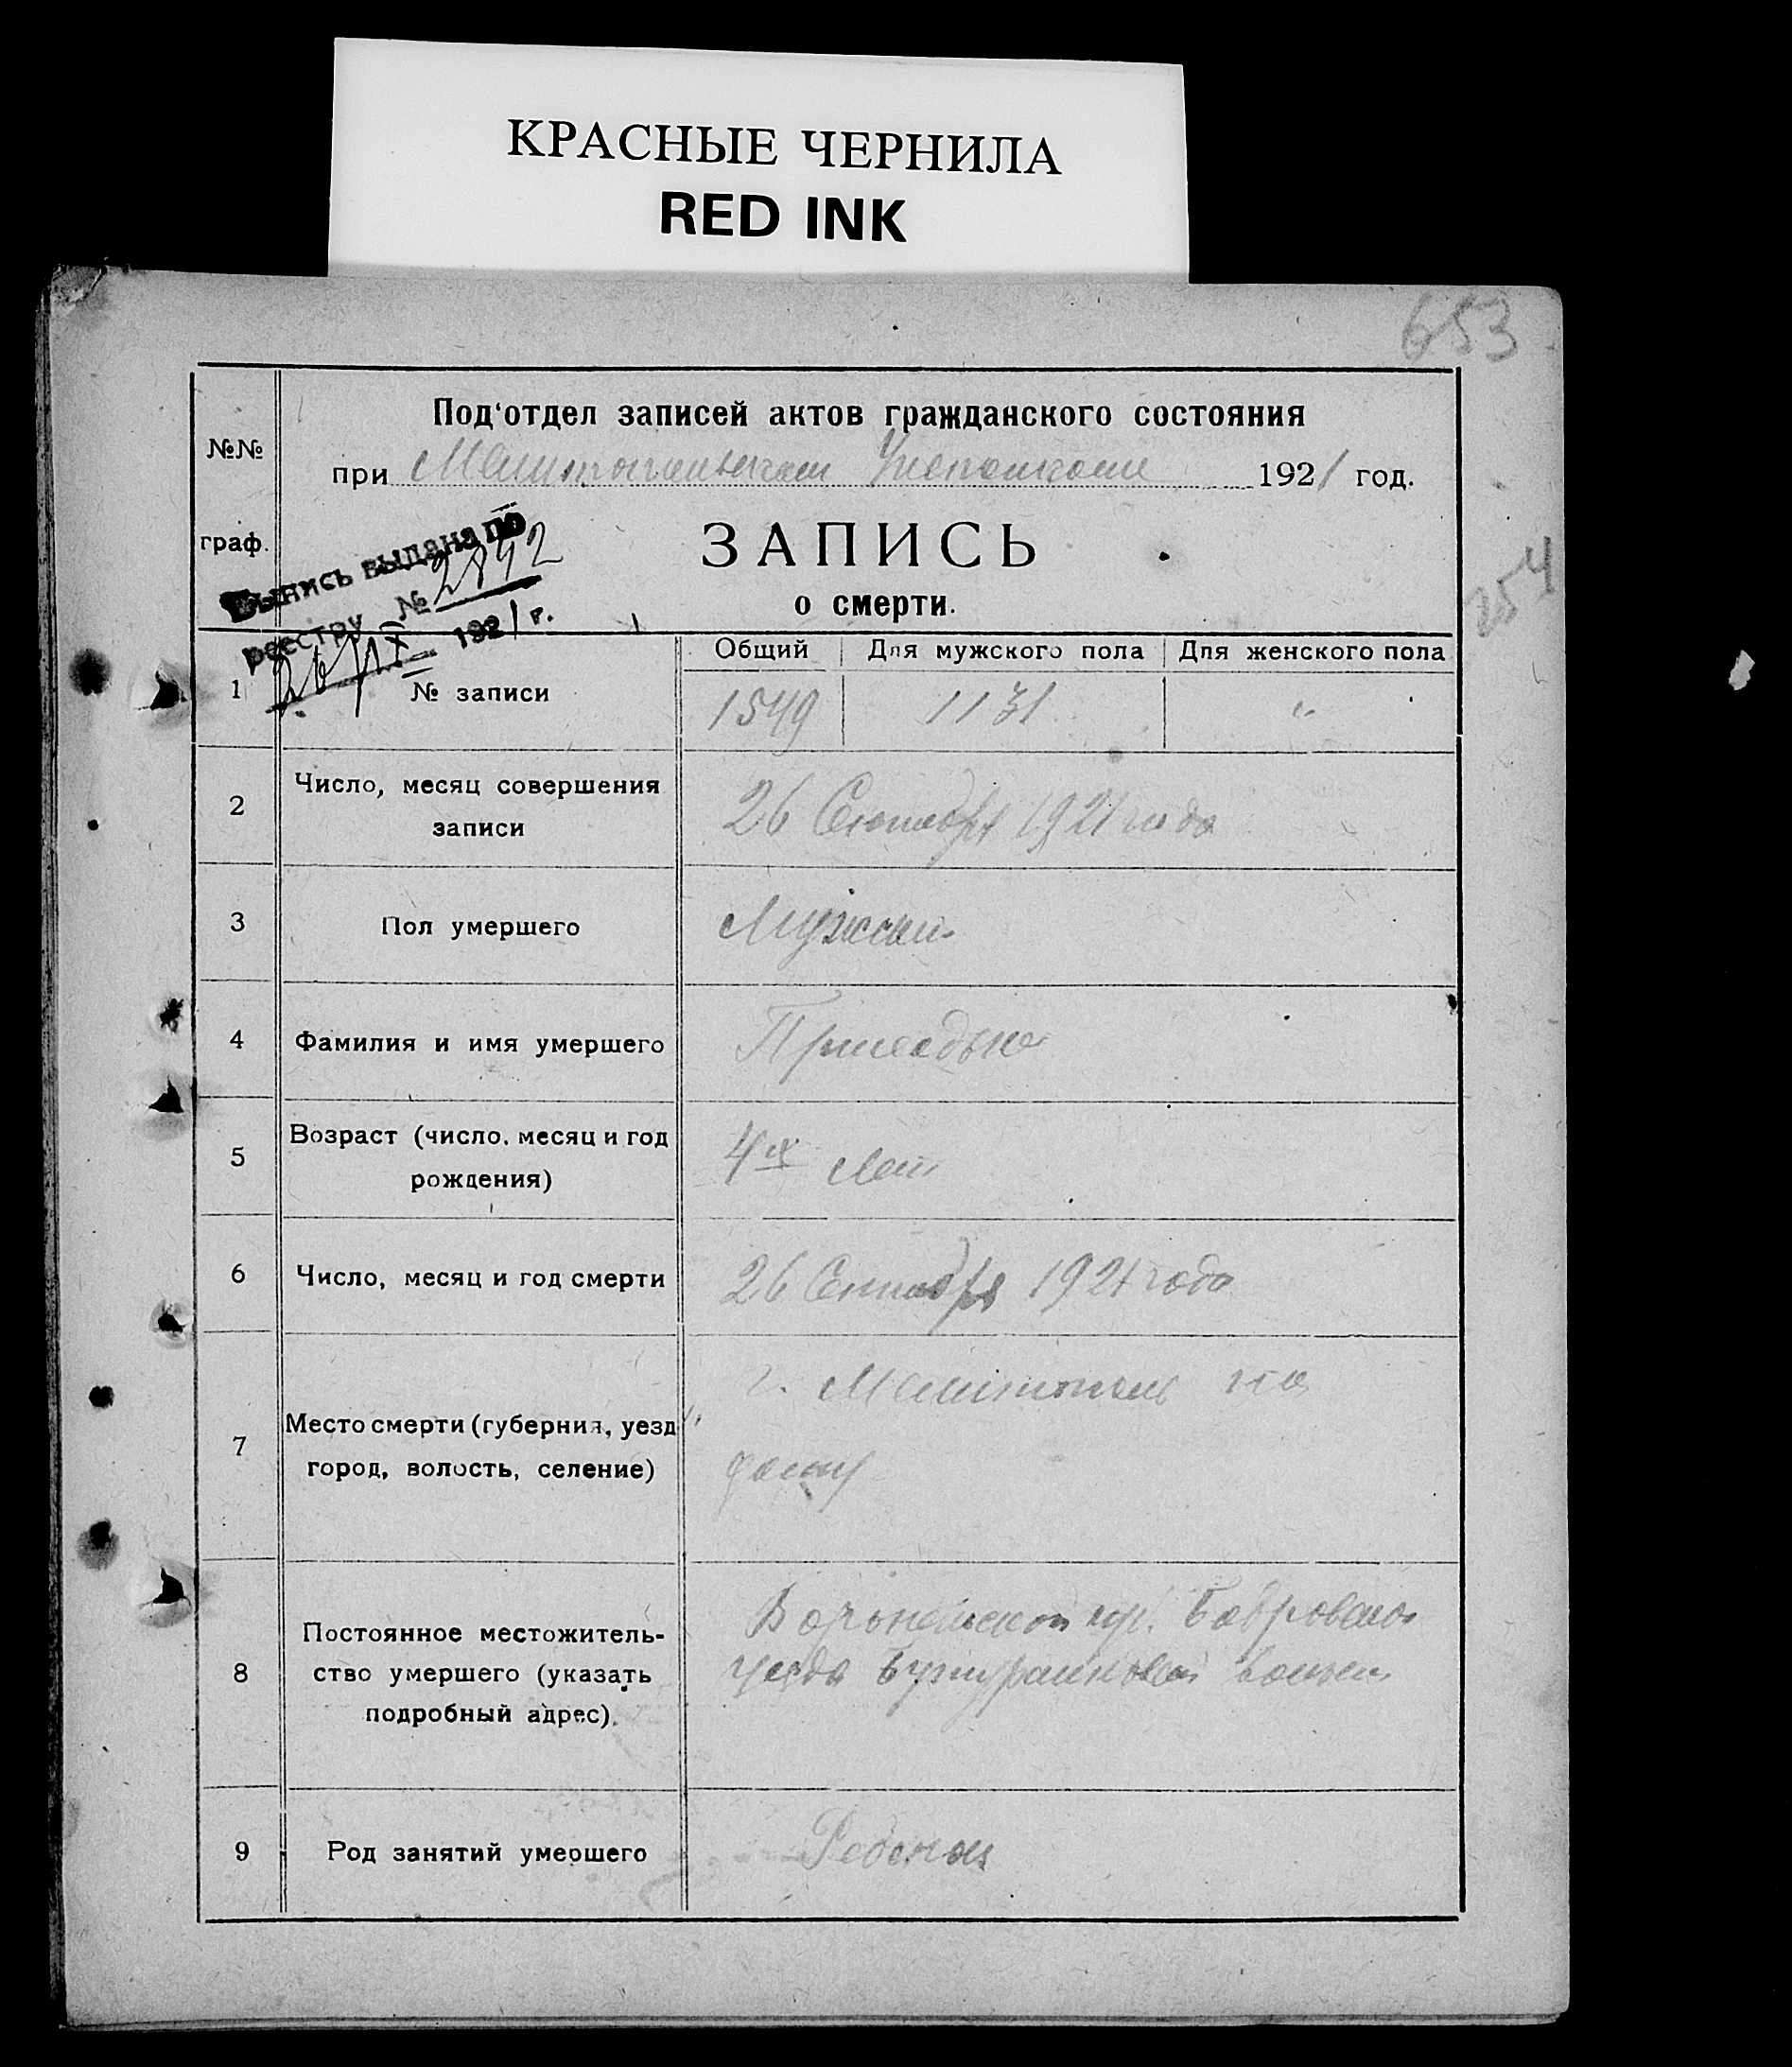 КРАСНЫЕ ЧЕРНИЛА
RED INK
653
№№
граф.
Под‘отдел записей актов гражданского состояния
при Мелитопольском 1921 год.
Выпись выдана по
реестру № 2842
26/IX 1921 г.
ЗАПИСЬ
о смерти.
254
Общий Для мужского пола Для женского пола
1 № записи 1549 1131 "
2 Число, месяц совершения
записи
26 Сентября 1921 года
3 Пол умершего Мужск.
4 Фамилия и имя умершего
5 Возраст (число, месяц и год
рождения)
4х лет
6 Число, месяц и год смерти 26 Сентября 1921 года
7 Место смерти (губерния, уезд,
город, волость, селение)
г. Мелитополь на
дому
8 Постоянное местожитель-
ство умершего (указать
подробный адрес).
Воронежской губ. Бобровского
уезда волости
9 Род занятий умершего Ребенок